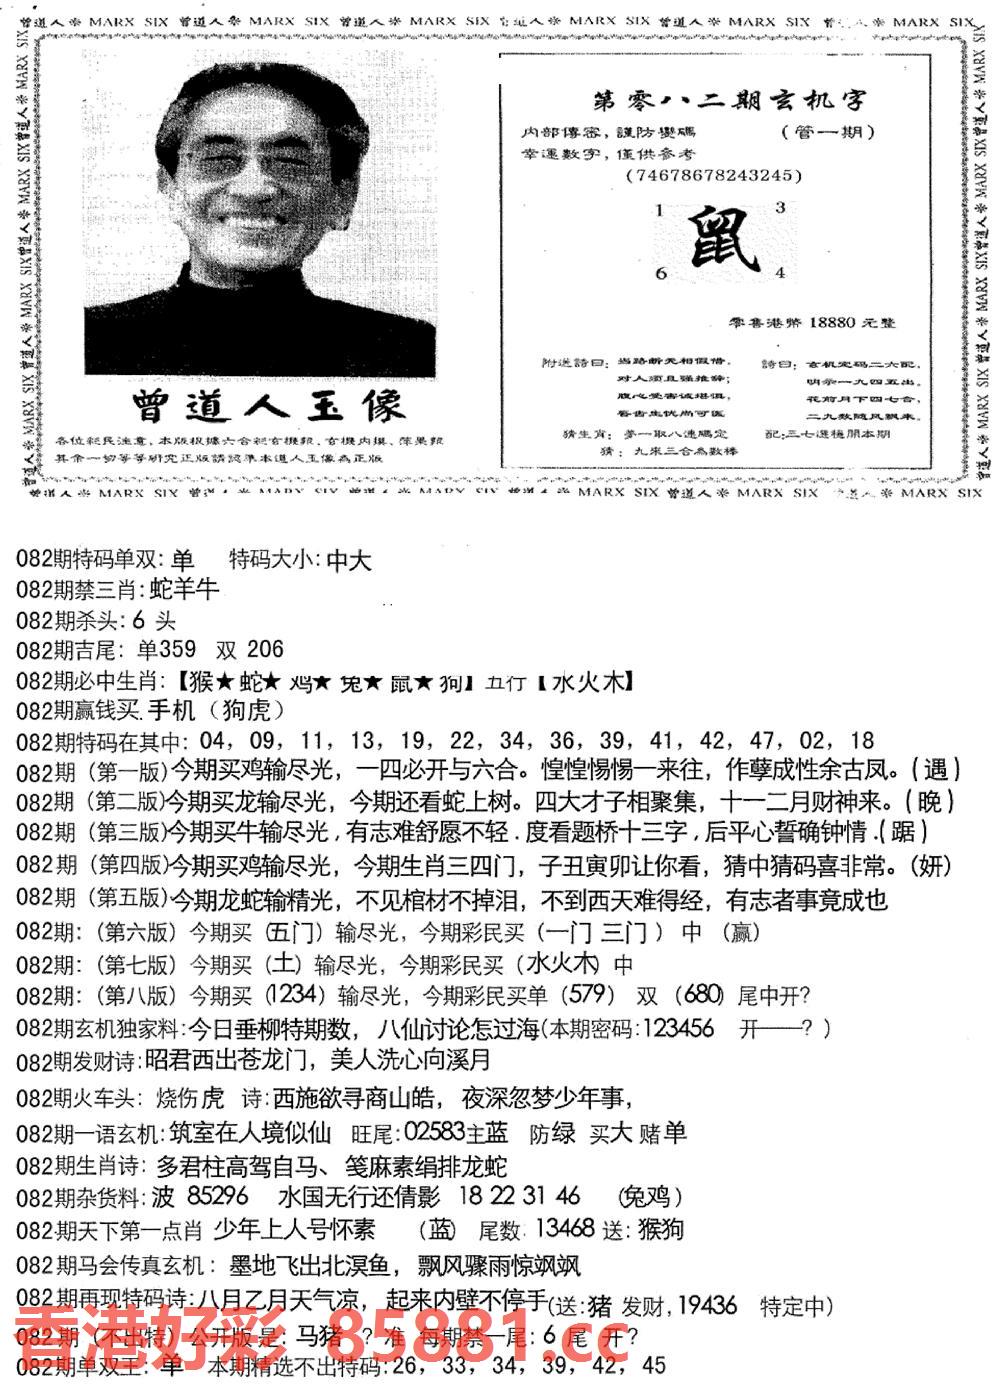 曾道人※ MARX SIX 曾道人※ MARX SIX 曾道人※ MARX SIX 曾道人※ MARX SIX 曾道人※ MARX SIX 曾道人※ MARX SIX
曾道人玉像
各位彩民注意,本版根據六合彩玄機報、玄機内摸、苹果报
其余一切等等研究正版請認準本道人玉像為正版
第零八二期玄机字
内部傳密,謹防變碼 (管一期)
幸運數字,僅供參考
(74678678243245)
1 3
鼠
6 4
零售港幣 18880 元整
附送詩曰: 当路斩天相假惜,
对人须且强推辞;
腹心受害诚堪惧,
唇齿生忧尚可医
詩曰: 玄机定码二六配,
明示一九四五出,
花前月下四七合,
二九数随风飘来。
猜生肖: 夢一取八連碼定 配:三七選種開本期
猜: 九来三合為數棒
082期特码单双: 单 特码大小: 中大
082期禁三肖: 蛇羊牛
082期杀头: 6 头
082期吉尾: 单359 双 206
082期必中生肖:【猴★蛇★鸡★兔★鼠★狗】五行【水火木】
082期赢钱买.手机（狗虎）
082期特码在其中: 04, 09, 11, 13, 19, 22, 34, 36, 39, 41, 42, 47, 02, 18
082期（第一版)今期买鸡输尽光，一四必开与六合。惶惶惕惕一来往，作孽成性余古凤。(遇)
082期（第二版)今期买龙输尽光，今期还看蛇上树。四大才子相聚集，十一二月财神来。(晚)
082期（第三版)今期买牛输尽光,有志难舒愿不轻.度看题桥十三字,后平心誓确钟情.(踞)
082期（第四版)今期买鸡输尽光，今期生肖三四门，子丑寅卯让你看，猜中猜码喜非常。(妍)
082期（第五版)今期龙蛇输精光，不见棺材不掉泪，不到西天难得经，有志者事竟成也
082期:（第六版）今期买（五门）输尽光,今期彩民买（一门 三门）中 （赢）
082期:（第七版）今期买（土）输尽光,今期彩民买（水火木）中
082期:（第八版）今期买（1234）输尽光,今期彩民买单（579） 双 （680）尾中开?
082期玄机独家料:今日垂柳特期数，八仙讨论怎过海(本期密码:123456 开——?)
082期发财诗:昭君西出苍龙门，美人洗心向溪月
082期火车头: 烧伤虎 诗:西施欲寻商山皓，夜深忽梦少年事，
082期一语玄机:筑室在人境似仙 旺尾:02583主蓝 防绿 买大 赌单
082期生肖诗: 多君柱高驾自马、笺麻素绢排龙蛇
082期杂货料:波 85296 水国无行还倩影 18 22 31 46 （兔鸡）
082期天下第一点肖 少年上人号怀素 （蓝） 尾数: 13468 送: 猴狗
082期马会传真玄机: 墨地飞出北溟鱼，飘风骤雨惊飒飒
082期再现特码诗:八月乙月天气凉，起来内壁不停手(送:猪 发财,19436 特定中)
082期（不出特）公开版是: 马猪 ?准 每期禁一尾: 6 尾 开?
082期单双王: 单 本期精选不出特码:26, 33, 34, 39, 42, 45
香港好彩 85881.cc